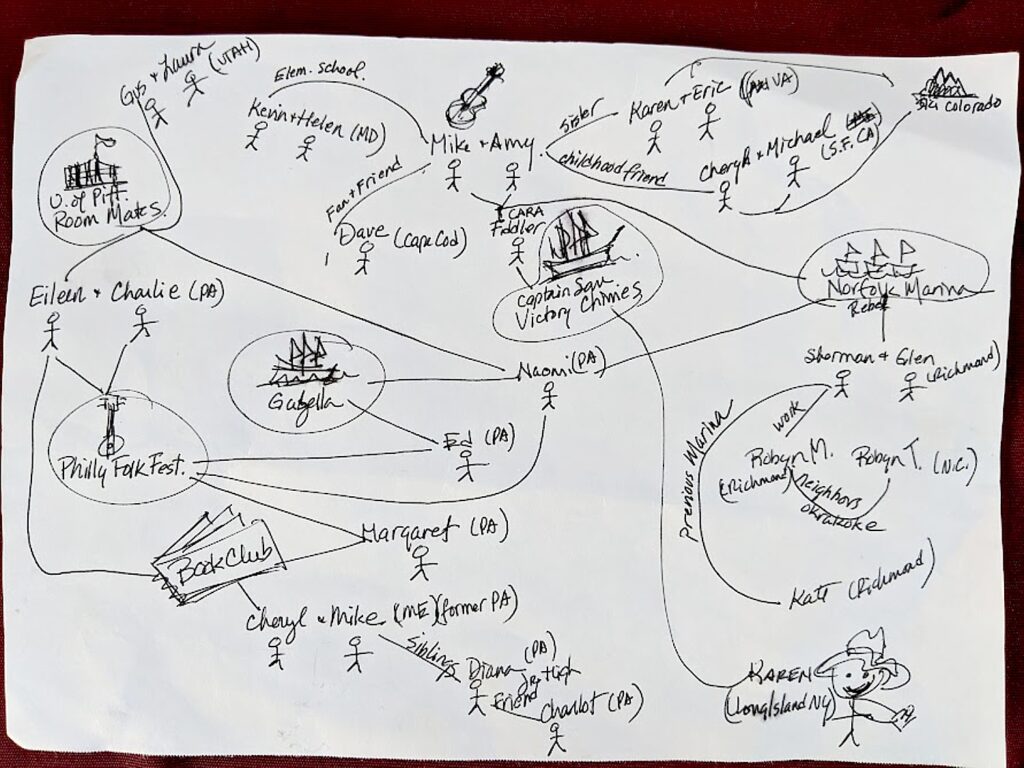 Gus + Laura (UTAH)
Elem. School.
Kevin + Helen (MD)
Mike + Amy
sister
Karen + Eric
VA)
childhood friend
Cheryl + Michael
(S.F. CA)
Ski Colorado
U. of Pitt.
Room Mates.
Fan + Friend
Dave (Cape Cod)
CARA
Fiddler
Captain Sam
Victory Chimes
Norfolk Marina
Rebel
Eileen + Charlie (PA)
Gazella
Naomi (PA)
Sherman + Glen
(Richmond)
Philly Folk Fest.
Ed (PA)
Previous Marina
work
Robyn M.
(Richmond)
Robyn T. (N.C.)
neighbors
okrakoke
Book Club
Margaret (PA)
Katt (Richmond)
Cheryl + Mike (ME) (former PA)
Sibling
Diana (PA)
Jr High
Friend
Charlot (PA)
KAREN
(Long Island NY)